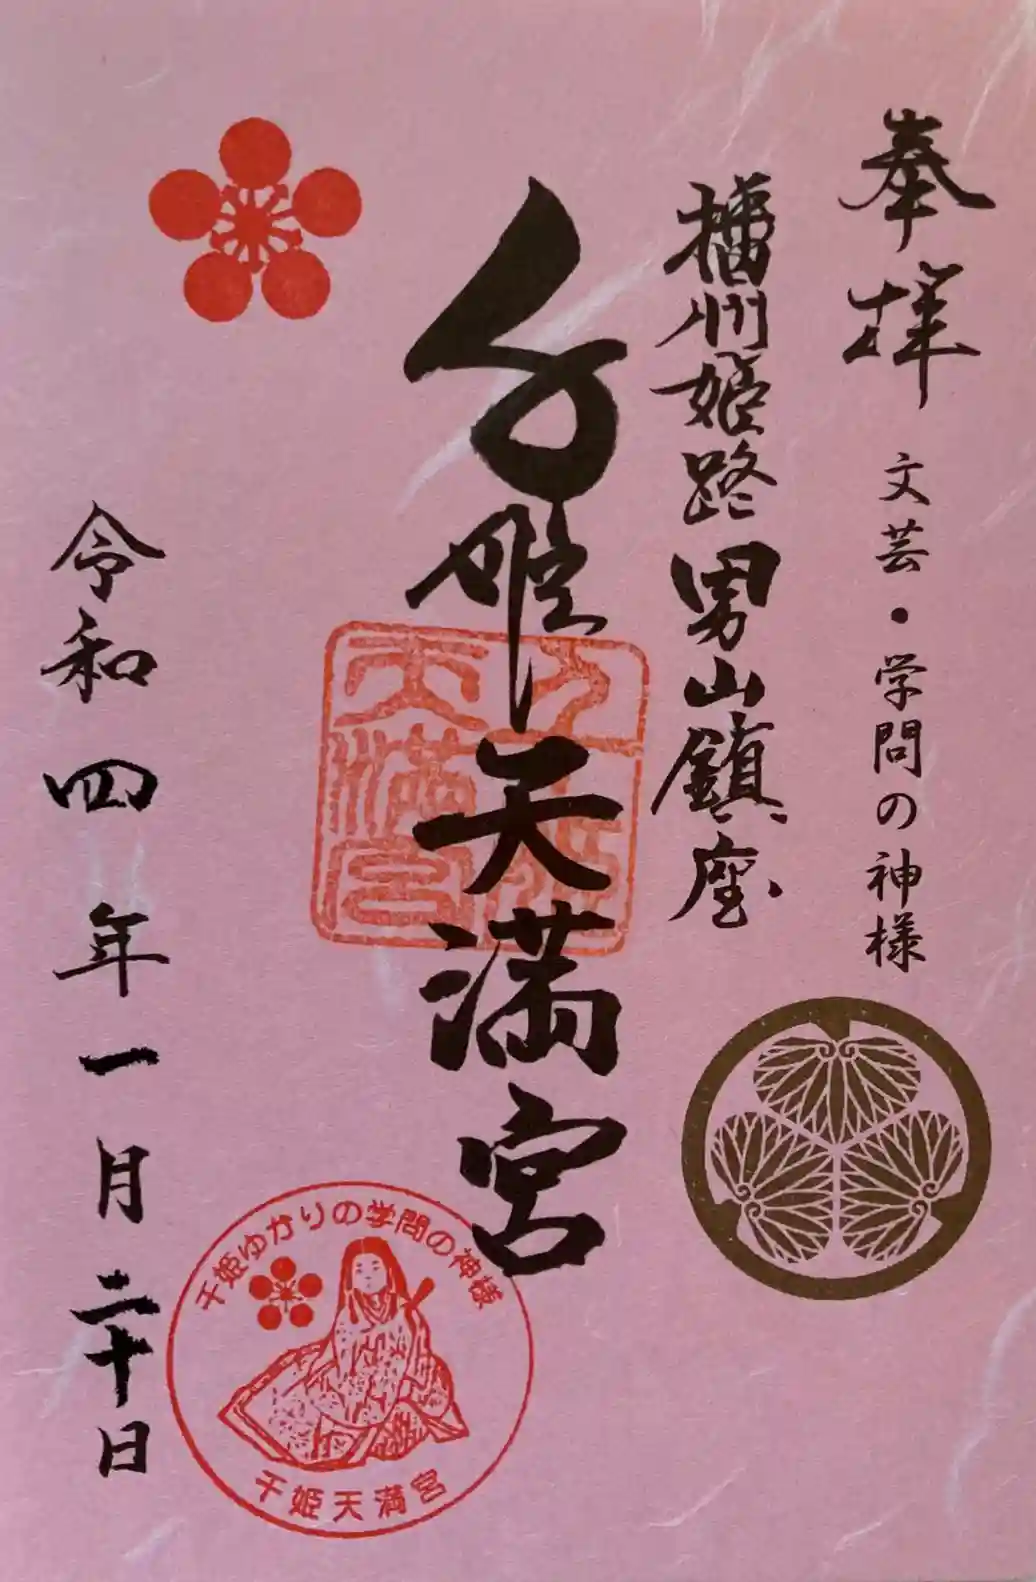 奉拝
文芸・学問の神様
播州姫路男山鎮座
千姫天満宮
令和四年一月二十日
千姫ゆかりの学問の神様
千姫天満宮